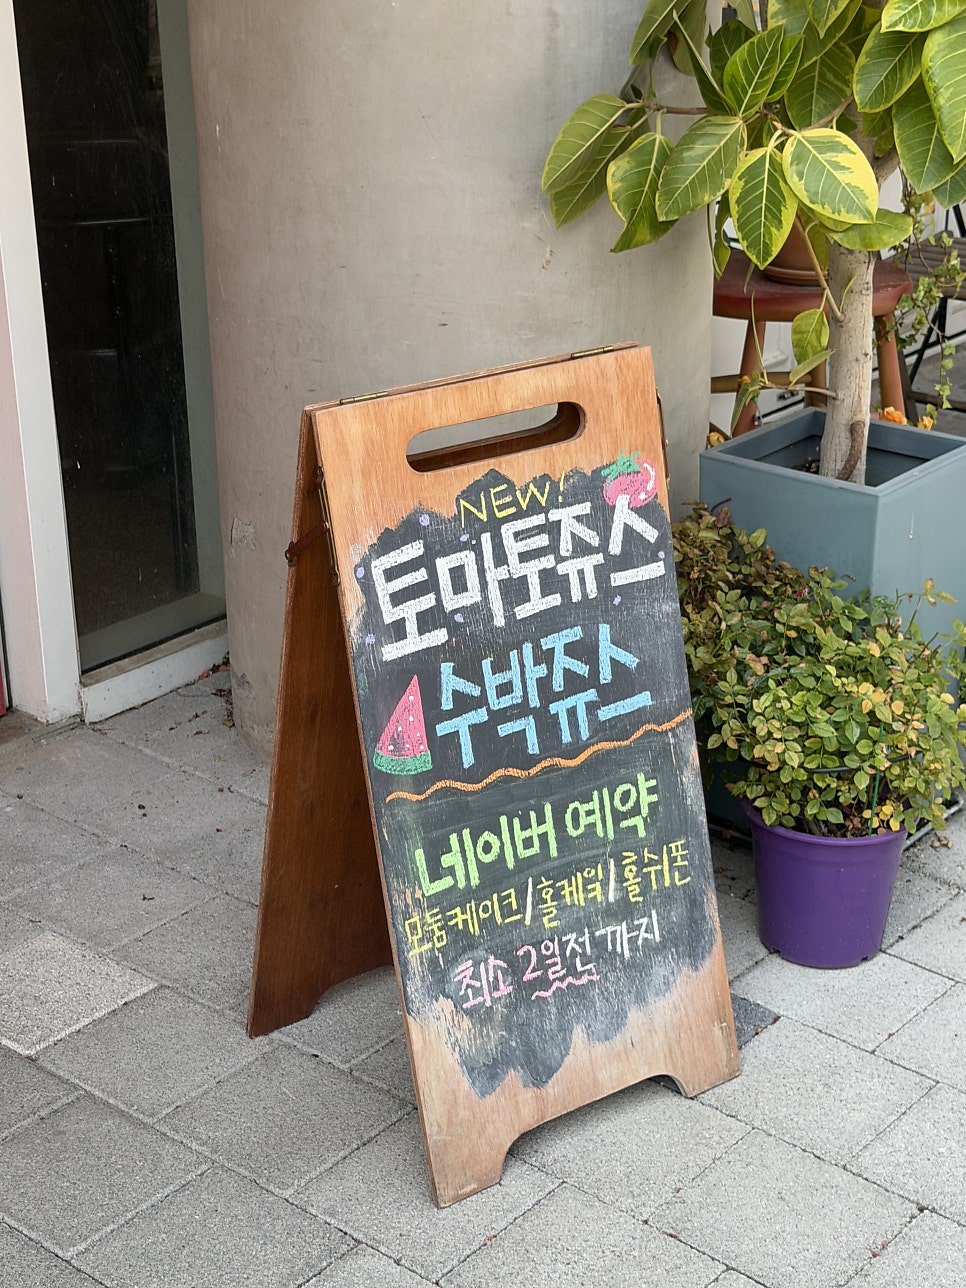 NEW!
토마토쥬스
수박쥬스
네이버 예약
모둠케이크/홀케잌/홀쉬폰
최소 2일전 까지